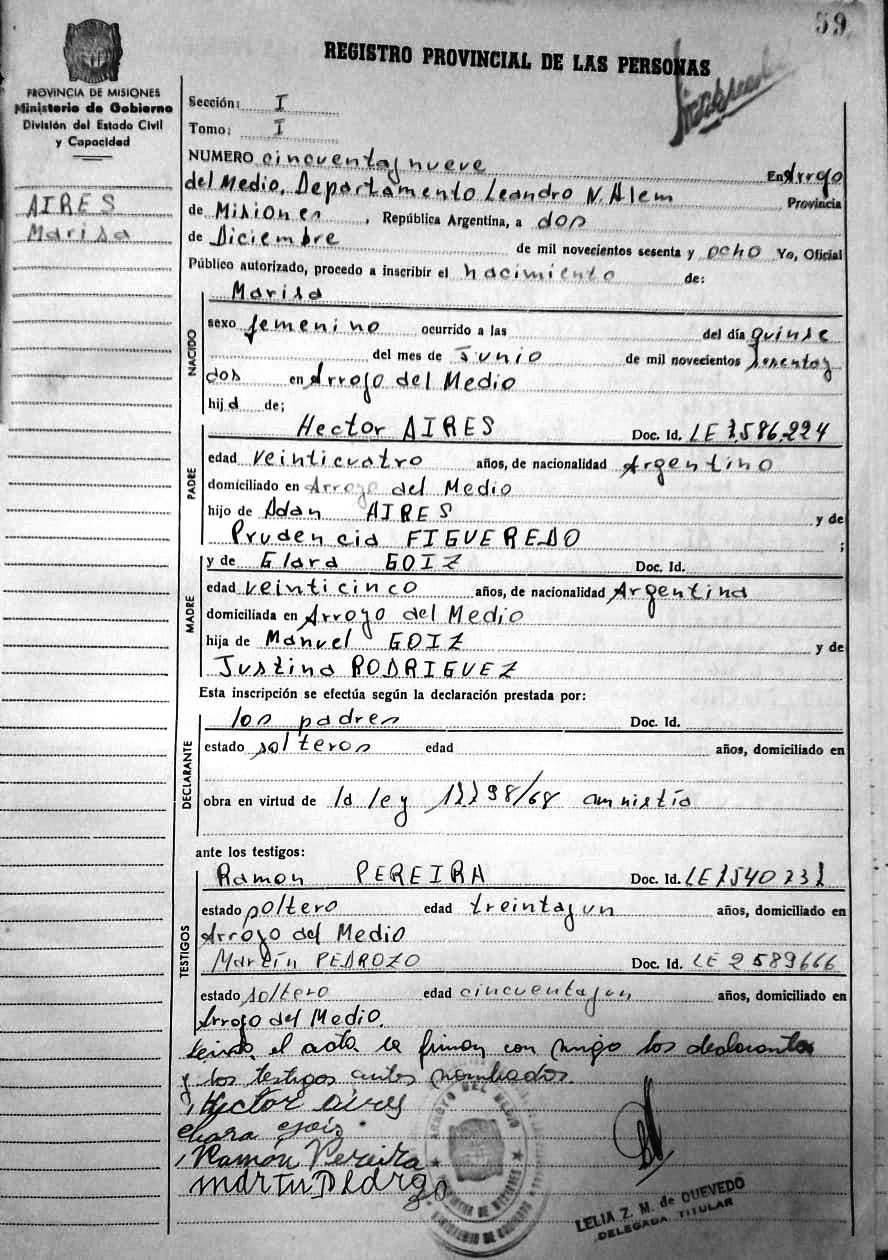 59
REGISTRO PROVINCIAL DE LAS PERSONAS
PROVINCIA DE MISIONES
Ministerio de Gobierno
División del Estado Civil
y Capacidad
AIRES
Marisa
Sección: I
Tomo: I
NUMERO cincuentaynueve En Arroyo
del Medio, Departamento Leandro N. Alem Provincia
de Misiones, República Argentina, a dos
de Diciembre de mil novecientos sesenta y ocho Yo, Oficial
Público autorizado, procedo a inscribir el nacimiento de:
NACIDO
Marisa
sexo femenino ocurrido a las del día quinse
del mes de Junio de mil novecientos sesentay
dos en Arroyo del Medio
hija de;
PADRE
Hector AIRES Doc. Id. LE 7.586.224
edad veinticuatro años, de nacionalidad Argentino
domiciliado en Arroyo del Medio
hijo de Adan AIRES y de
Prudencia FIGUEREDO ;
MADRE
y de Clara GOIZ Doc. Id.
edad veinticinco años, de nacionalidad Argentina
domiciliada en Arroyo del Medio
hija de Manuel GOIZ y de
Justina RODRIGUEZ
Esta inscripción se efectúa según la declaración prestada por:
DECLARANTE
los padres Doc. Id.
estado solteros edad años, domiciliado en
obra en virtud de la ley /68 amnistía
ante los testigos:
TESTIGOS
Ramon PEREIRA Doc. Id. LE
estado soltero edad treintayun años, domiciliado en
Arroyo del Medio
Martín PEDROZO Doc. Id. LE 2589666
estado soltero edad cincuentayun años, domiciliado en
Arroyo del Medio.
Leida el acta la firman con migo los declarantes
y los testigos antes nombrados.
Hector aires
clara gois
Ramón Pereira
ARROYO DEL MEDIO
LELIA Z. M. de QUEVEDO
DELEGADA TITULAR